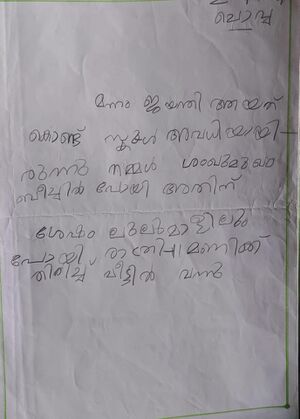 ചൊവ്വ
മന്നം ജയന്തി ആയത്
കൊണ്ട് സ്കൂൾ അവധിയായി-
രുന്നു നമ്മൾ ശംഖുമുഖം
ബീച്ചിൽ പോയി അതിന്
ശേഷം ലുലുമാളിലും
പോയി, രാത്രി 11 മണിക്ക്
തിരിച്ച് വീട്ടിൽ വന്നു